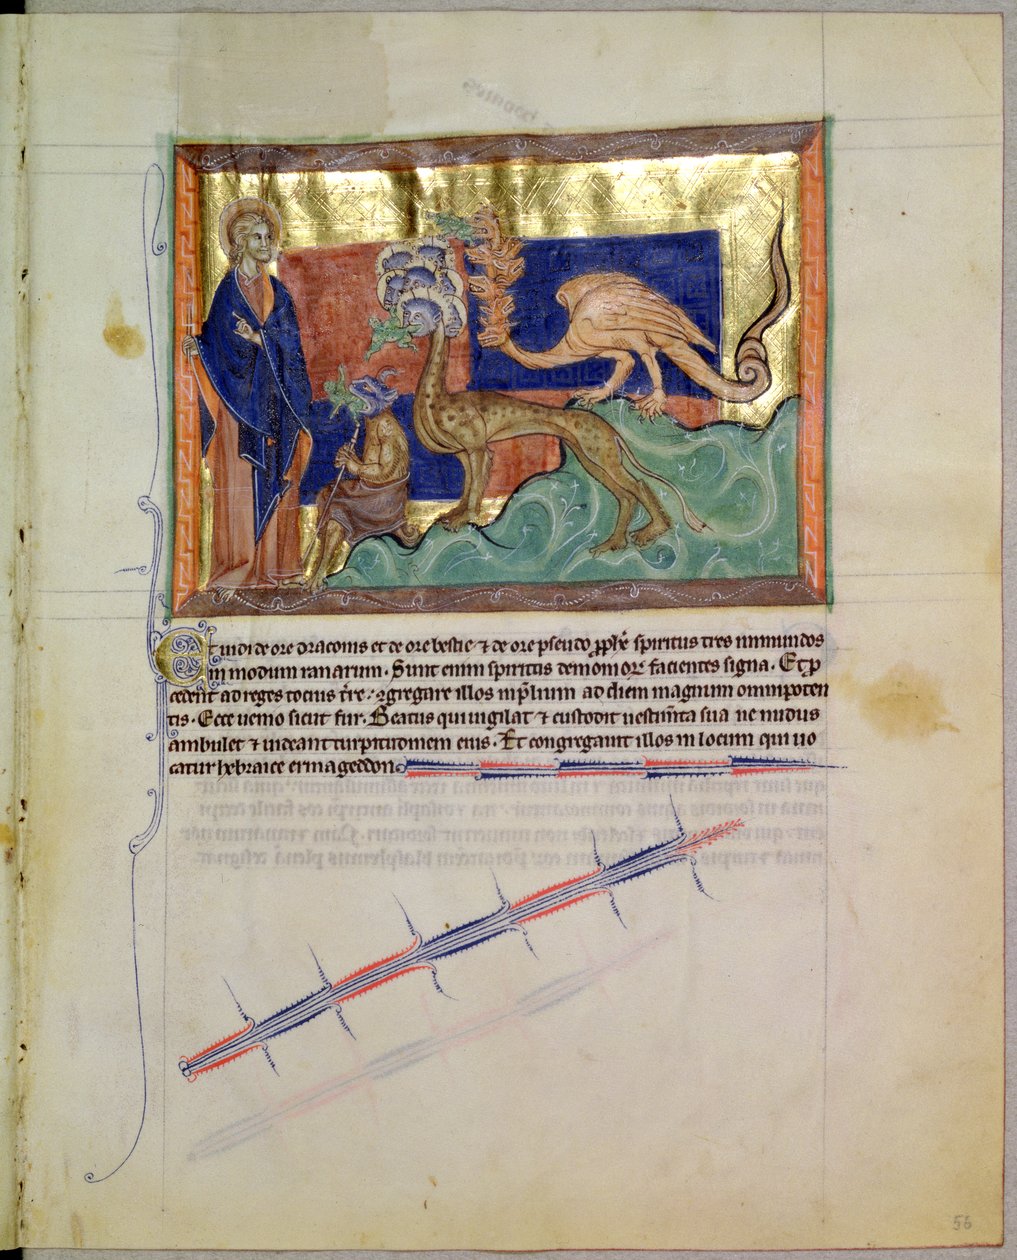 Et uidi de ore draconis et de ore bestie ⁊ de ore pseudo ꝓph̃e spiritus tres inmundos
in modum ranarum. Sunt enim spiritus demonioꝝ facientes signa. Et ꝓ
cedent ad reges tocius t̃re ꝯgregare illos in p̃lium ad diem magnum omnipoten
tis. Ecce uenio sicut fur. Beatus qui uigilat ⁊ custodit uestim̃ta sua ne nudus
ambulet ⁊ uideant turpitudinem eius. Et congregauit illos in locum qui uo
catur hebraice ermagedon
56